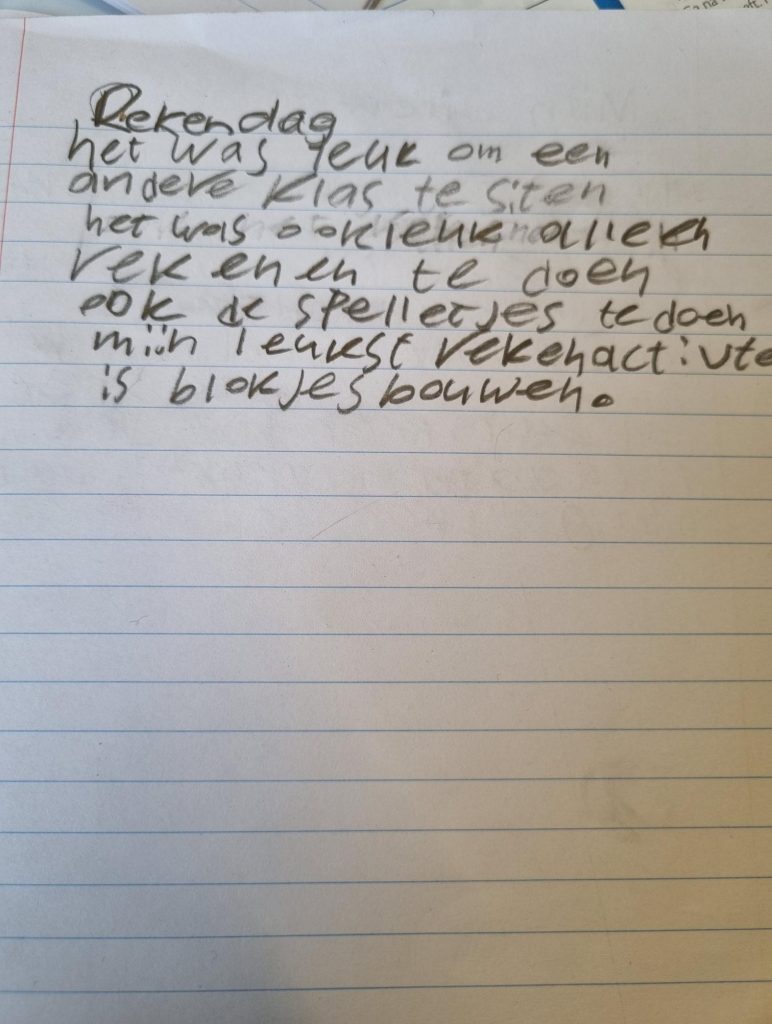 Rekendag
het was leuk om een
andere klas te siten
het was ook leuk allieen
rekenen te doen
ook de spelletjes te doen
mijn leukst rekenactivte
is blokjes bouwen.